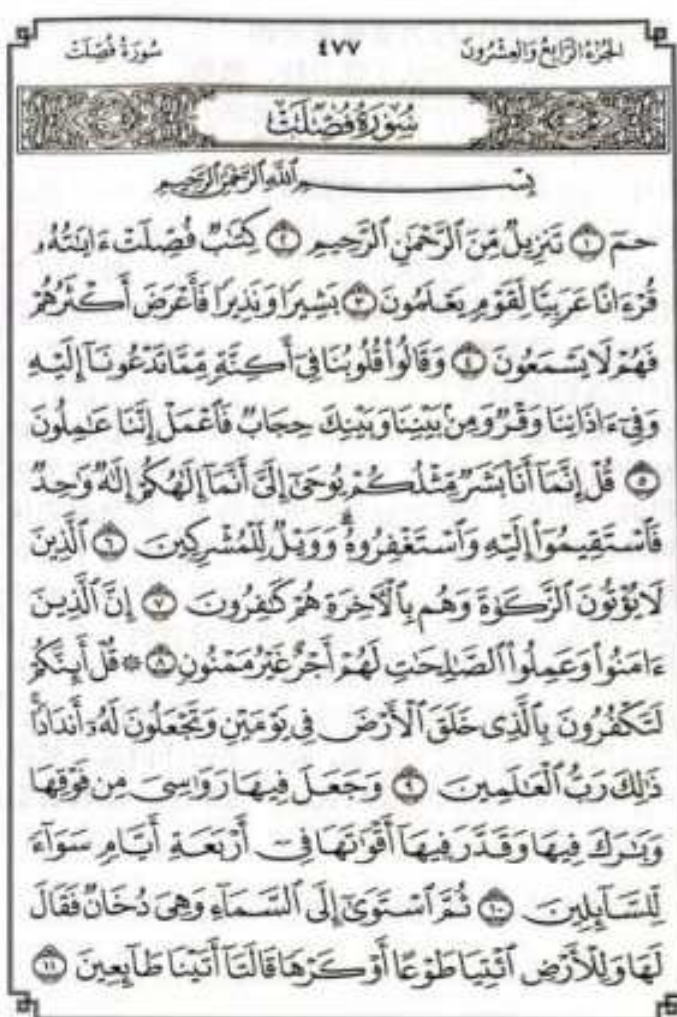 الجزء الرابع والعشرون ٤٧٧ سورة فصلت
سُورَةُ فُصِّلَتۡ
بِسۡمِ ٱللَّهِ ٱلرَّحۡمَٰنِ ٱلرَّحِيمِ
حمٓ ١ تَنزِيلٌ مِّنَ ٱلرَّحۡمَٰنِ ٱلرَّحِيمِ ٢ كِتَٰبٌ فُصِّلَتۡ ءَايَٰتُهُۥ
قُرۡءَانًا عَرَبِيًّا لِّقَوۡمٍ يَعۡلَمُونَ ٣ بَشِيرًا وَنَذِيرًا فَأَعۡرَضَ أَكۡثَرُهُمۡ
فَهُمۡ لَا يَسۡمَعُونَ ٤ وَقَالُواْ قُلُوبُنَا فِيٓ أَكِنَّةٍ مِّمَّا تَدۡعُونَآ إِلَيۡهِ
وَفِيٓ ءَاذَانِنَا وَقۡرٌ وَمِنۢ بَيۡنِنَا وَبَيۡنِكَ حِجَابٌ فَٱعۡمَلۡ إِنَّنَا عَٰمِلُونَ
٥ قُلۡ إِنَّمَآ أَنَا۠ بَشَرٌ مِّثۡلُكُمۡ يُوحَىٰٓ إِلَيَّ أَنَّمَآ إِلَٰهُكُمۡ إِلَٰهٌ وَٰحِدٌ
فَٱسۡتَقِيمُوٓاْ إِلَيۡهِ وَٱسۡتَغۡفِرُوهُۗ وَوَيۡلٌ لِّلۡمُشۡرِكِينَ ٦ ٱلَّذِينَ
لَا يُؤۡتُونَ ٱلزَّكَوٰةَ وَهُم بِٱلۡأٓخِرَةِ هُمۡ كَٰفِرُونَ ٧ إِنَّ ٱلَّذِينَ
ءَامَنُواْ وَعَمِلُواْ ٱلصَّٰلِحَٰتِ لَهُمۡ أَجۡرٌ غَيۡرُ مَمۡنُونٍ ٨ ۞ قُلۡ أَئِنَّكُمۡ
لَتَكۡفُرُونَ بِٱلَّذِي خَلَقَ ٱلۡأَرۡضَ فِي يَوۡمَيۡنِ وَتَجۡعَلُونَ لَهُۥٓ أَندَادًاۚ
ذَٰلِكَ رَبُّ ٱلۡعَٰلَمِينَ ٩ وَجَعَلَ فِيهَا رَوَٰسِيَ مِن فَوۡقِهَا
وَبَٰرَكَ فِيهَا وَقَدَّرَ فِيهَآ أَقۡوَٰتَهَا فِيٓ أَرۡبَعَةِ أَيَّامٍ سَوَآءً
لِّلسَّآئِلِينَ ١٠ ثُمَّ ٱسۡتَوَىٰٓ إِلَى ٱلسَّمَآءِ وَهِيَ دُخَانٌ فَقَالَ
لَهَا وَلِلۡأَرۡضِ ٱئۡتِيَا طَوۡعًا أَوۡ كَرۡهًا قَالَتَآ أَتَيۡنَا طَآئِعِينَ ١١